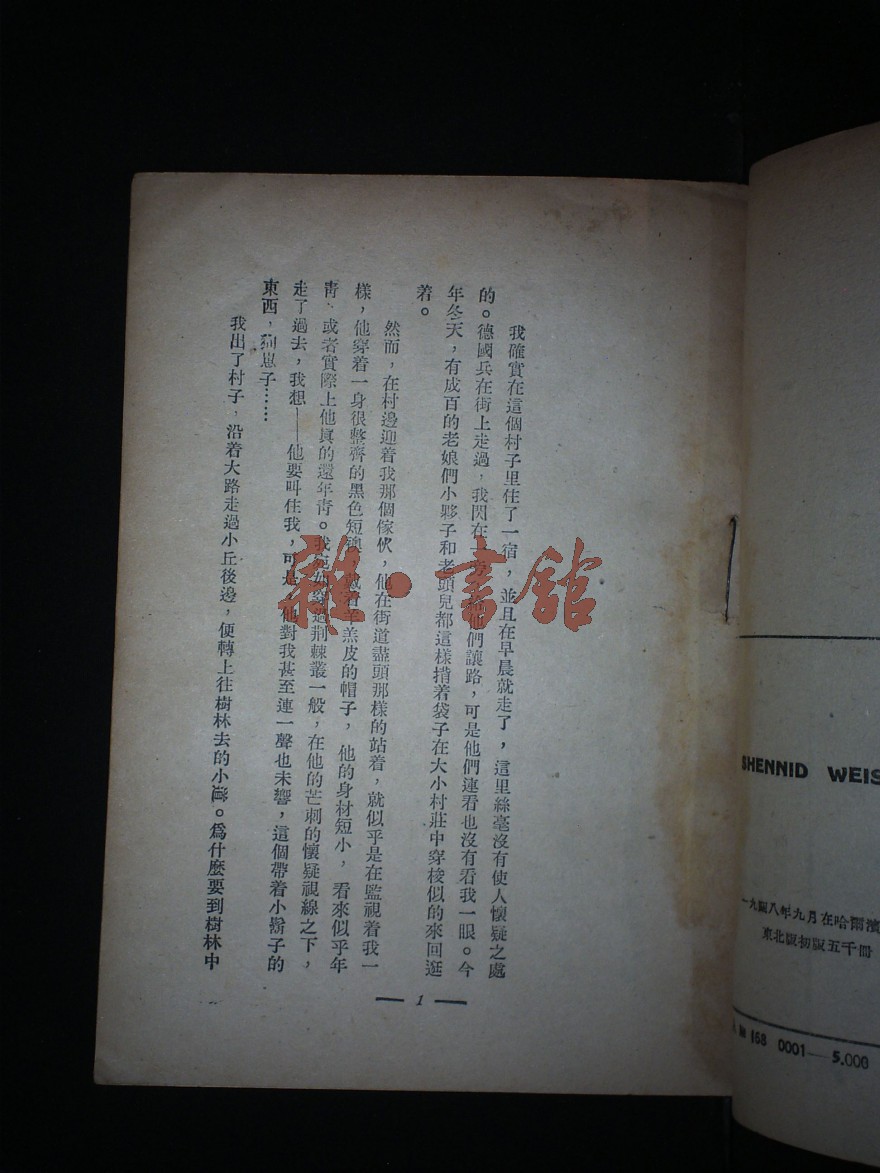 我確實在這個村子里住了一宿，並且在早晨就走了，這里絲毫沒有使人懷疑之處
的。德國兵在街上走過，我閃在一旁給他們讓路，可是他們連看也沒有看我一眼。今
年冬天，有成百的老娘們小夥子和老頭兒都這樣揹着袋子在大小村莊中穿梭似的來回逛
着。
然而，在村邊迎着我那個傢伙，他在街道盡頭那樣的站着，就似乎是在監視着我一
樣，他穿着一身很整齊的黑色短 戴着羊羔皮的帽子，他的身材短小，看來似乎年
靑、或者實際上他眞的還年靑。我 過荆棘叢一般，在他的芒刺的懷疑視線之下，
走了過去，我想——他要叫住我，可是 他對我甚至連一聲也未響，這個帶着小鬍子的
東西，狗崽子……
我出了村子，沿着大路走過小丘後邊，便轉上往樹林去的小 。爲什麼要到樹林中
— 1 —
雜·書舘
SHENNID WEIS
一九四八年九月在哈爾濱
東北版初版五千冊
168 0001—5.000